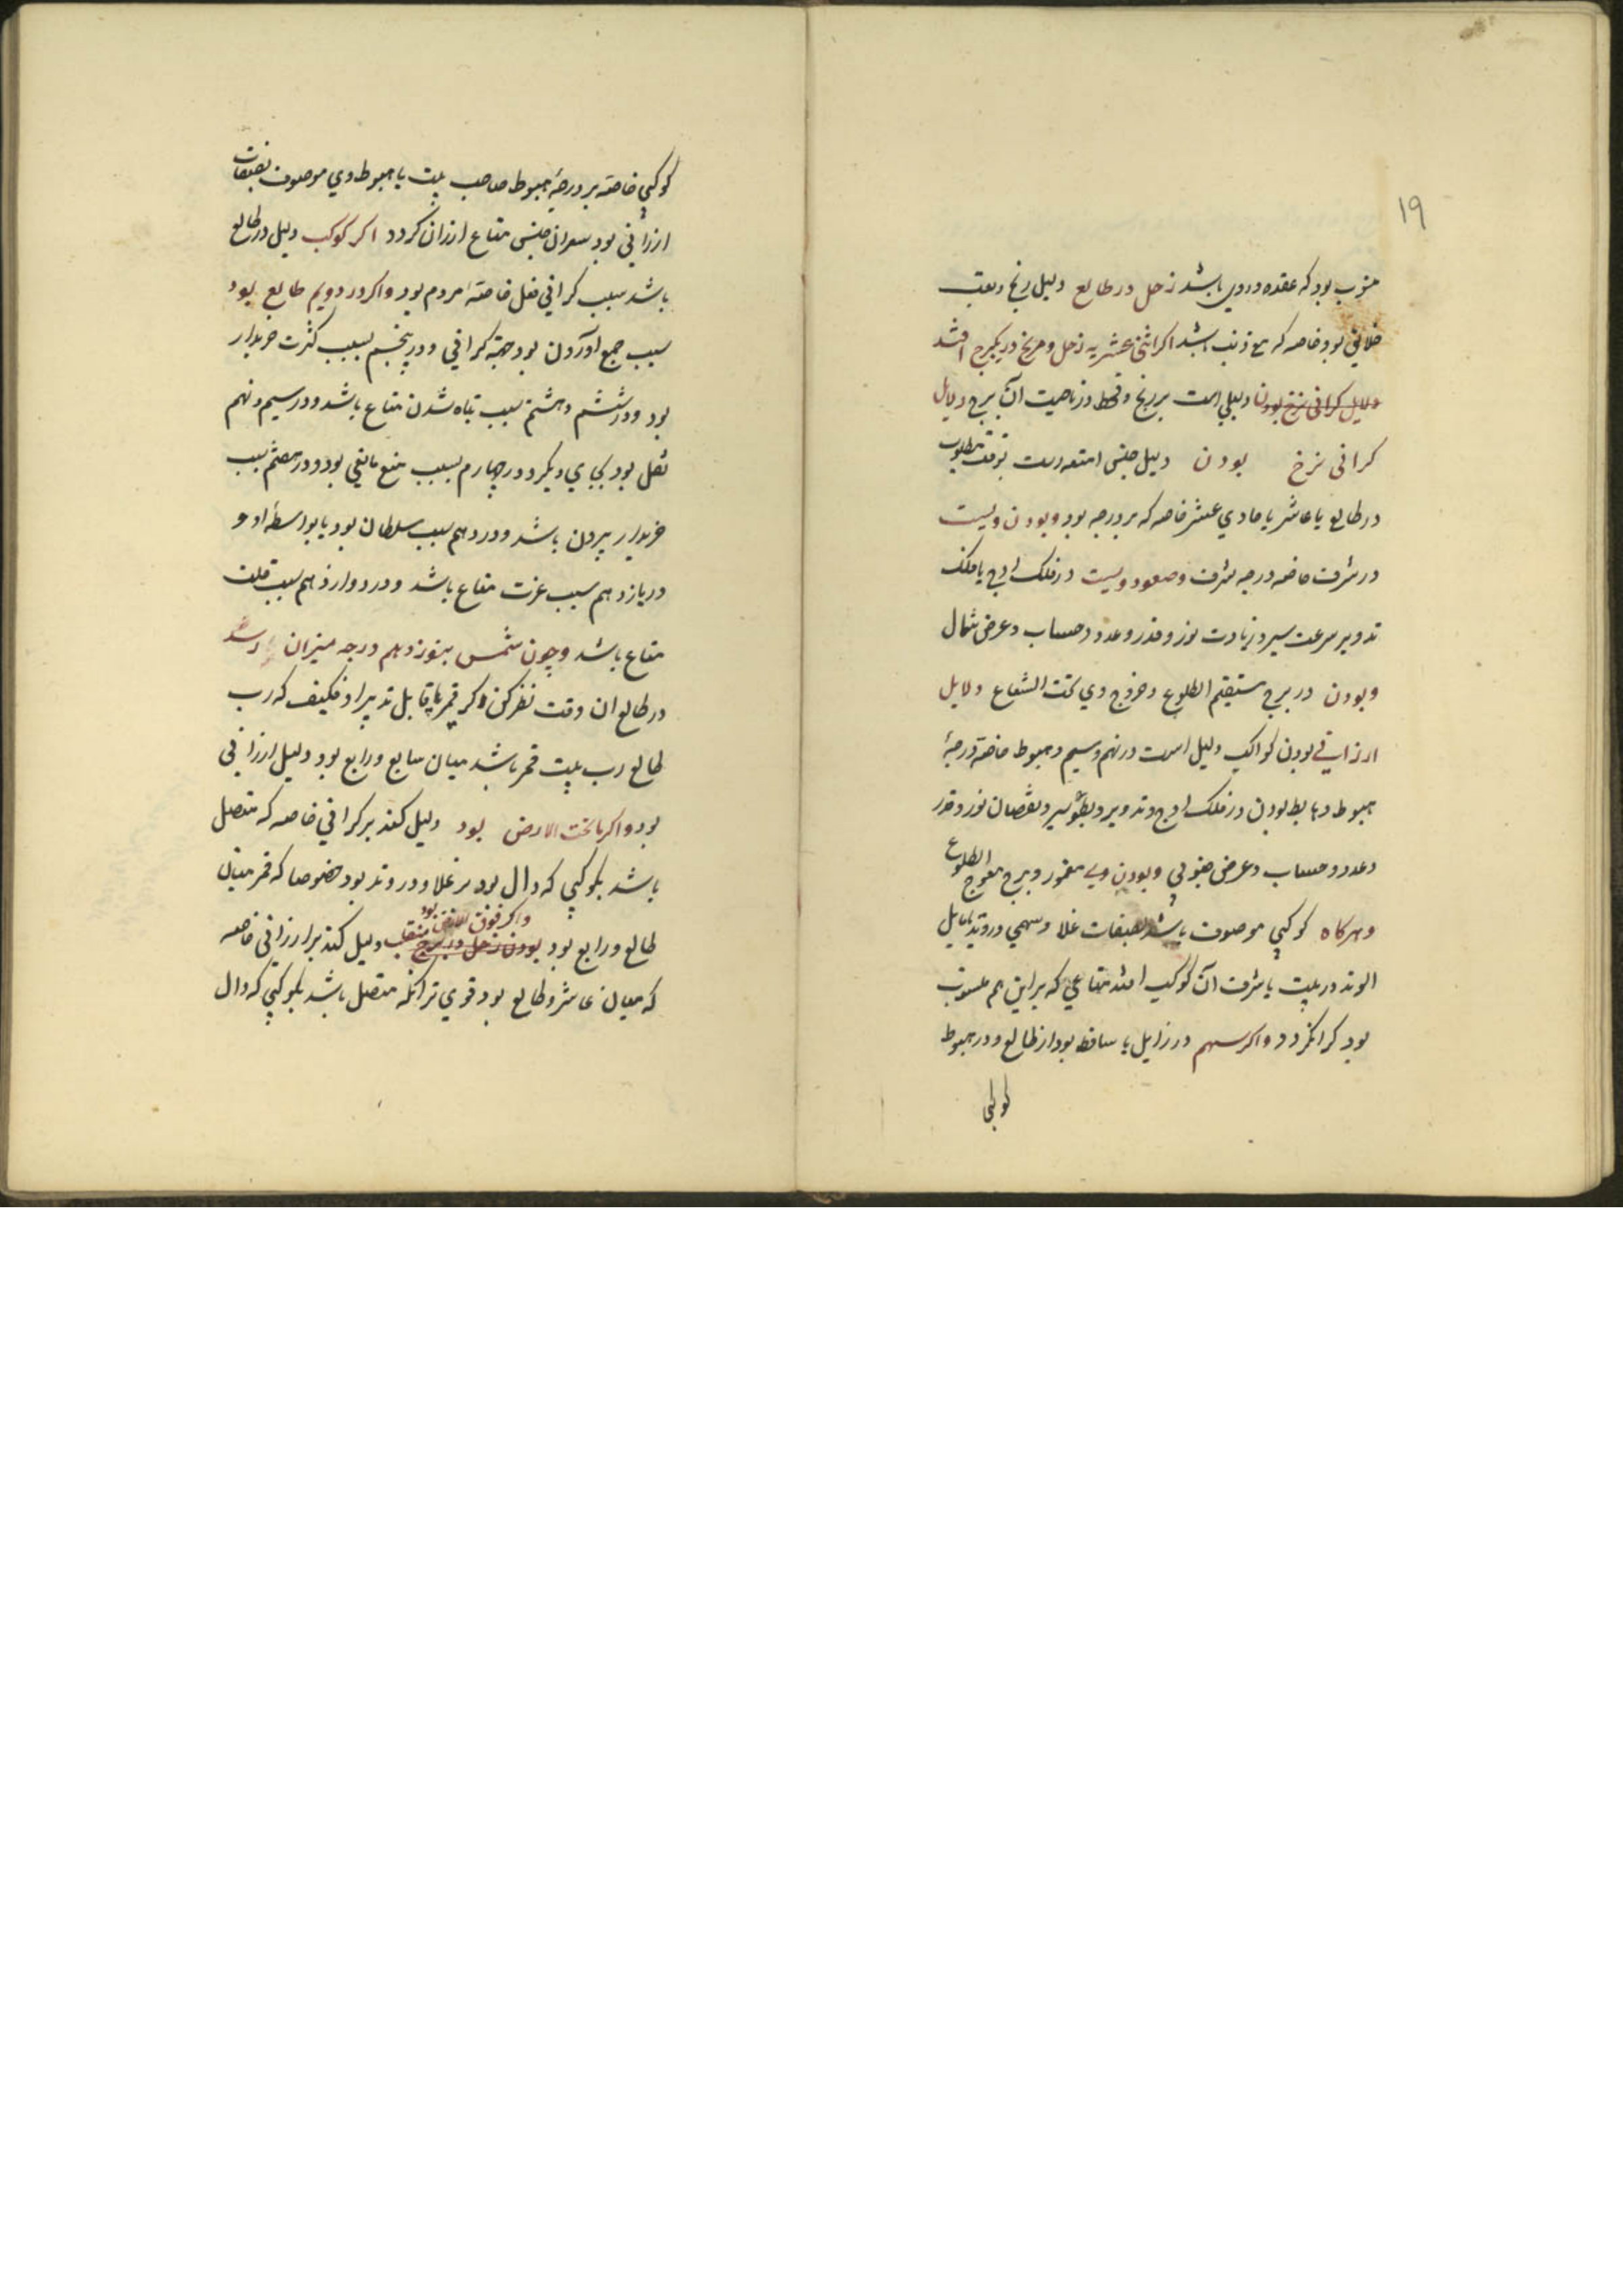 ۱۹
منسوب بود که عقده در وی باشد زحل در طالع دلیل رنج و تعب
خلایق بود خاصه که مع ذنب باشد اگر اثنی عشریه زحل و مریخ در یکبرج افتد
دلایل کرانی نرخ بودن دلیلی است بر رنج و قحط در ناحیت آن برج دلایل
کرانی نرخ بودن دلیل جنس امتعه است بوقت مطلوب
در طالع یا عاشر یا حادی عشر خاصه که بر درجه بود و بودن ویست
در شرف خاصه درجه شرف و صعود ویست در فلک اوج یا فلک
تدویر سرعت سیر و زیادت نور و قدر و عدد و حساب و عرض شمال
و بودن در برج مستقیم الطلوع و خروج وی تحت الشعاع دلایل
ارزانی بودن کواکب دلیل است در نهم و سیم و هبوط خاصه درجهٔ
هبوط و هابط بودن در فلک اوج و تدویر و بطؤ سیر و نقصان نور و قدر
و عدد و حساب و عرض جنوبی و بودن وی مقهور و برج معوج الطلوع
و هرکاه کوکبی موصوف باشد بصفات غلا و سهمی در وتد یا مایل
الوتد در بیت یا شرف آن کوکب افتد متاعی که براین هم منسوب
بود کران کردد و اکر سهم در زایل یا ساقط بود از طالع و در هبوط
کوکبی
کوکبی خاصه بر درجهٔ هبوط صاحب بیت یا هبوط وی موصوف بصفات
ارزانی بود سعر ان جنس متاع ارزان کردد اکر کوکب دلیل در طالع
باشد سبب کرانی فعل خاصهٔ مردم بود و اکر در دویم طالع بود
سبب جمع آوردن بود جهة کرانی و در پنجم بسبب کثرت خریدار
بود و در ششم و هشتم سبب تباه شدن متاع باشد و در سیم و نهم
نقل بود بجای دیکر و در چهارم بسبب منع مانعی بود و در هفتم سبب
خریدار بیرون باشد و در دهم سبب سلطان بود یا بواسطهٔ او و
در یازدهم سبب عزت متاع باشد و در دوازدهم سبب قلت
متاع باشد و چون شمس بنوزدهم درجه میزان رسد
در طالع ان وقت نظر کن و کر قمر یا قابل تدبیر او فکیف که رب
طالع رب بیت قمر باشد میان سابع و رابع بود دلیل ارزانی
بود و اکر با تحت الارض بود دلیل کند بر کرانی خاصه که متصل
باشد بکوکبی که دال بود بر غلا و در وتد بود خصوصا که قمر میان
طالع و رابع بود بودن زحل در برج منقلب و اکر فوق الارض بود دلیل کند بر ارزانی خاصه
که میان عاشر و طالع بود قوی تر انکه متصل باشد بکوکبی که دال